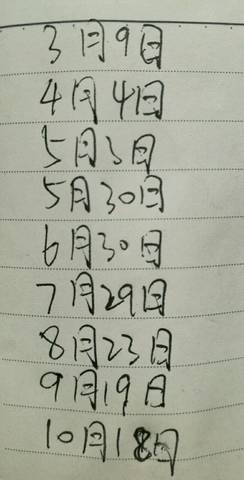 3月9日
4月4日
5月3日
5月30日
6月30日
7月29日
8月23日
9月19日
10月18日